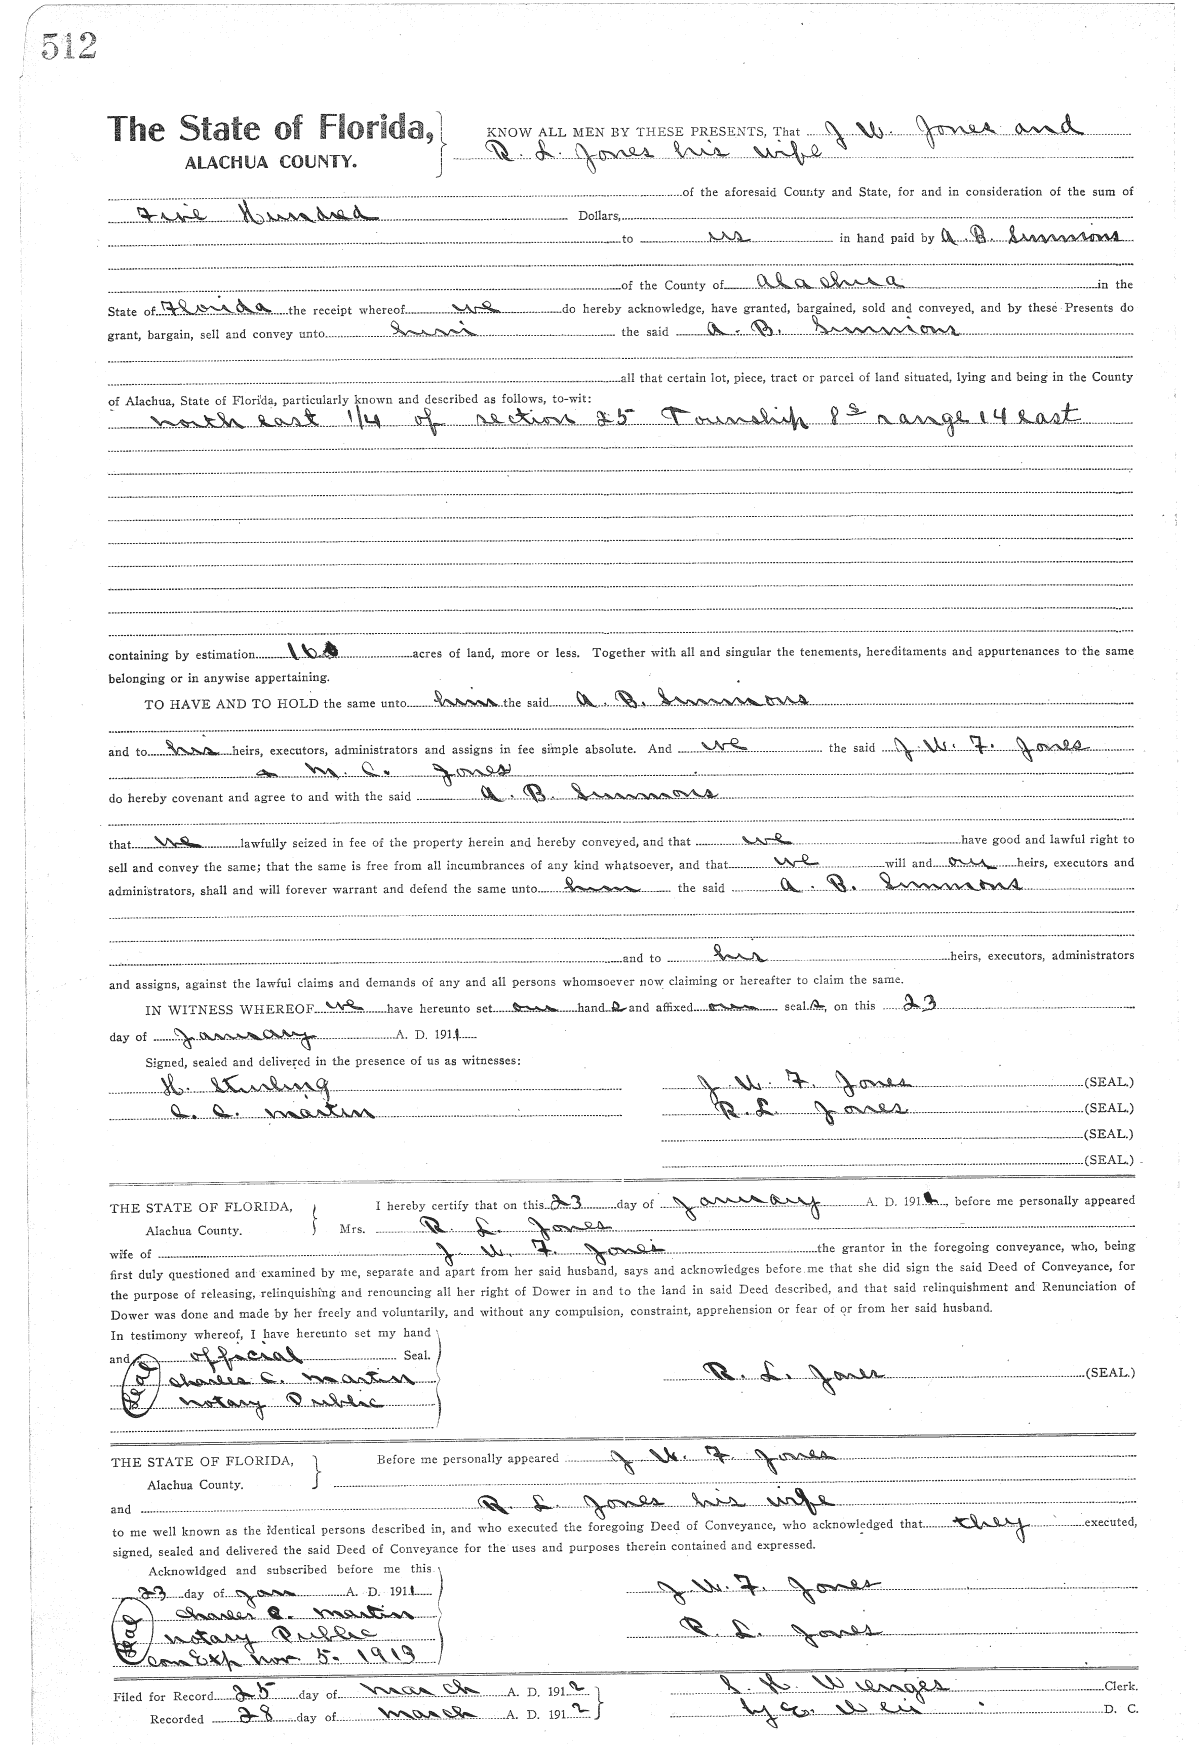 512
The State of Florida, KNOW ALL MEN BY THESE PRESENTS, That J W. Jones and
ALACHUA COUNTY. R. L. Jones his wife
of the aforesaid County and State, for and in consideration of the sum of
Five Hundred Dollars,
to us in hand paid by A. B. Simmons
of the County of Alachua in the
State of Florida the receipt whereof we do hereby acknowledge, have granted, bargained, sold and conveyed, and by these Presents do
grant, bargain, sell and convey unto him the said A. B. Simmons
all that certain lot, piece, tract or parcel of land situated, lying and being in the County
of Alachua, State of Florida, particularly known and described as follows, to-wit:
north east 1/4 of section 25 Township 8 S range 14 east
containing by estimation 160 acres of land, more or less. Together with all and singular the tenements, hereditaments and appurtenances to the same
belonging or in anywise appertaining.
TO HAVE AND TO HOLD the same unto him the said A. B. Simmons
and to his heirs, executors, administrators and assigns in fee simple absolute. And we the said J. W. F. Jones
M. C. Jones
do hereby covenant and agree to and with the said A. B. Simmons
that we lawfully seized in fee of the property herein and hereby conveyed, and that we have good and lawful right to
sell and convey the same; that the same is free from all incumbrances of any kind whatsoever, and that we will and our heirs, executors and
administrators, shall and will forever warrant and defend the same unto him the said A. B. Simmons
and to his heirs, executors, administrators
and assigns, against the lawful claims and demands of any and all persons whomsoever now claiming or hereafter to claim the same.
IN WITNESS WHEREOF we have hereunto set our hand s and affixed our seal s, on this 23
day of January A. D. 1911
Signed, sealed and delivered in the presence of us as witnesses:
H. Sturling J. W. F. Jones (SEAL.)
C. C. Martin R. L. Jones (SEAL.)
(SEAL.)
(SEAL.)
THE STATE OF FLORIDA, I hereby certify that on this 23 day of January A. D. 191 , before me personally appeared
Alachua County. Mrs. R. L. Jones
wife of J. W. F. Jones the grantor in the foregoing conveyance, who, being
first duly questioned and examined by me, separate and apart from her said husband, says and acknowledges before me that she did sign the said Deed of Conveyance, for
the purpose of releasing, relinquishing and renouncing all her right of Dower in and to the land in said Deed described, and that said relinquishment and Renunciation of
Dower was done and made by her freely and voluntarily, and without any compulsion, constraint, apprehension or fear of or from her said husband.
In testimony whereof, I have hereunto set my hand
and official Seal.
Seal Charles C. Martin R. L. Jones (SEAL.)
Notary Public
THE STATE OF FLORIDA, Before me personally appeared J. W. F. Jones
Alachua County.
and R. L. Jones his wife
to me well known as the identical persons described in, and who executed the foregoing Deed of Conveyance, who acknowledged that they executed,
signed, sealed and delivered the said Deed of Conveyance for the uses and purposes therein contained and expressed.
Acknowldged and subscribed before me this
23 day of Jan A. D. 1911 J. W. F. Jones
Seal Charles C. Martin
Notary Public R. L. Jones
Com Exp Nov 5. 1913
Filed for Record 25 day of March A. D. 1912 S. H. Wienges Clerk.
Recorded 28 day of March A. D. 1912 by E. Weir D. C.